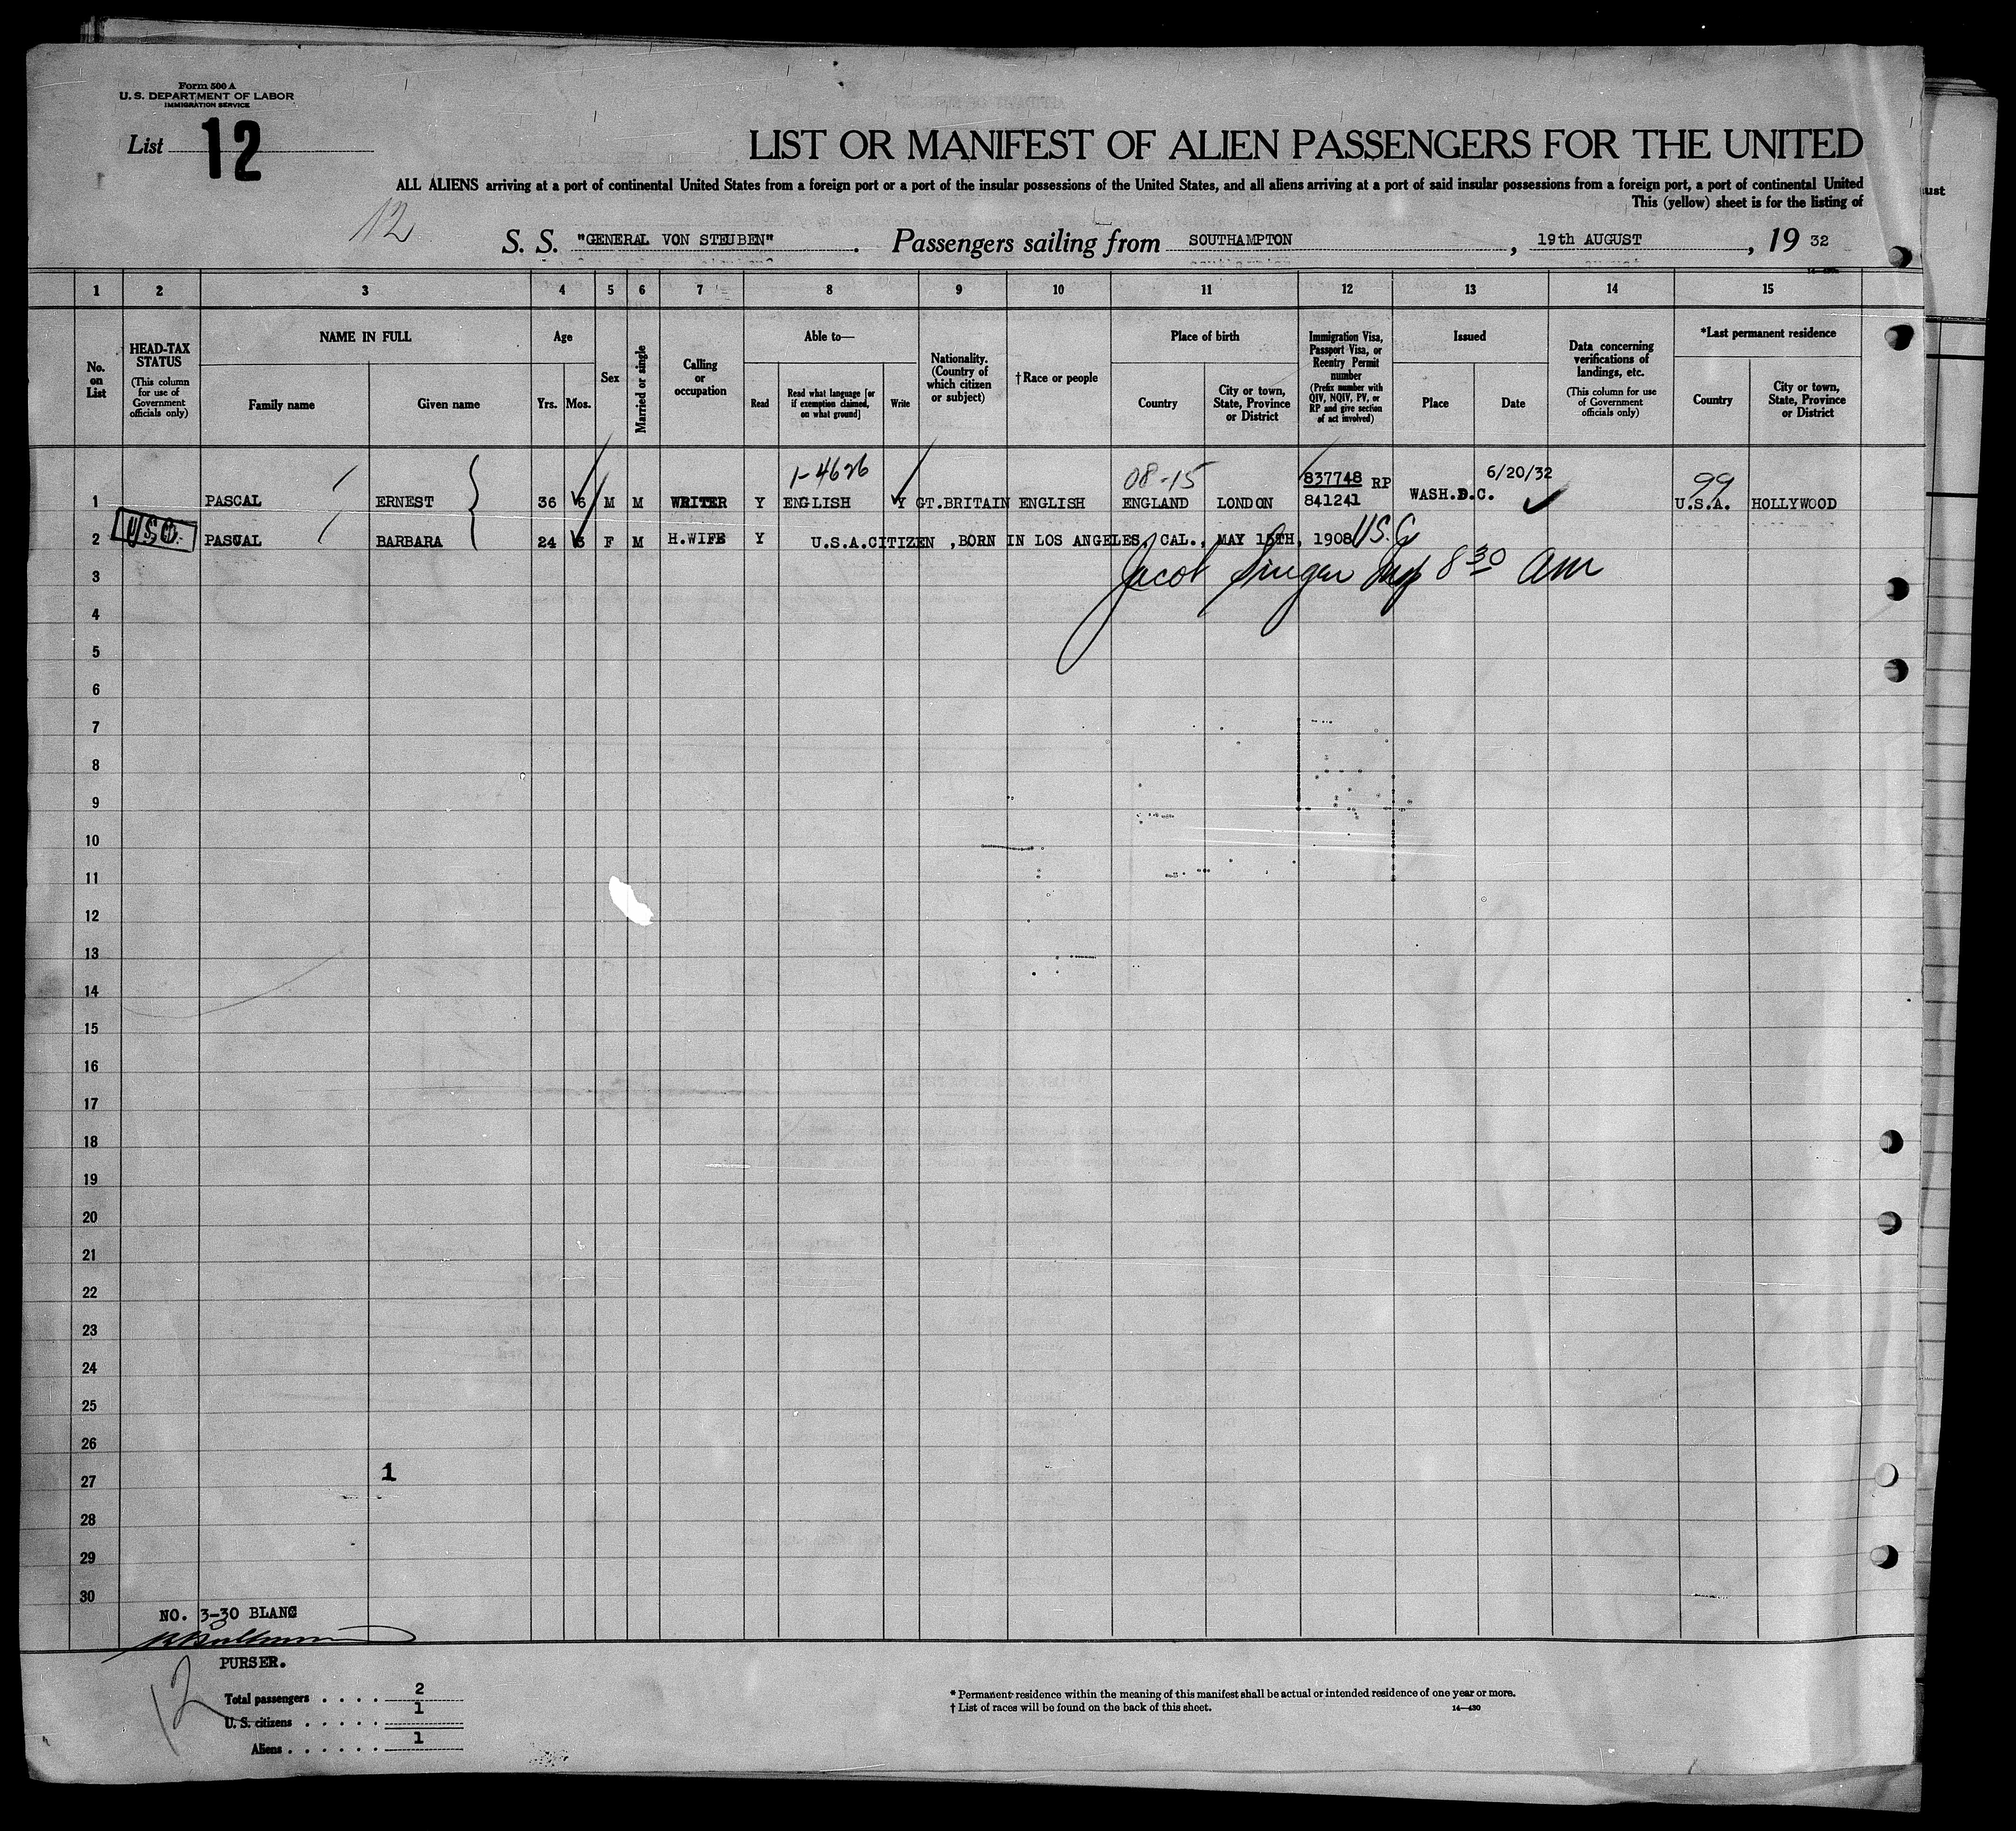 Form 500 A
U. S. DEPARTMENT OF LABOR
IMMIGRATION SERVICE
List 12
LIST OR MANIFEST OF ALIEN PASSENGERS FOR THE UNITED
ALL ALIENS arriving at a port of continental United States from a foreign port or a port of the insular possessions of the United States, and all aliens arriving at a port of said insular possessions from a foreign port, a port of continental United
This (yellow) sheet is for the listing of
ust
12
S. S. "GENERAL VON STEUBEN". Passengers sailing from SOUTHAMPTON, 19th AUGUST, 19 32
1 2 3 4 5 6 7 8 9 10 11 12 13 14 15
No. on List
HEAD-TAX STATUS
(This column for use of Government officials only)
NAME IN FULL
Family name
Given name
Age
Yrs. Mos.
Sex
Married or single
Calling or occupation
Able to—
Read
Read what language [or if exemption claimed, on what ground]
Write
Nationality. (Country of which citizen or subject)
†Race or people
Place of birth
Country
City or town, State, Province or District
Immigration Visa, Passport Visa, or Reentry Permit number
(Prefix number with QIV, NQIV, PV, or RP and give section of act involved)
Issued
Place
Date
Data concerning verifications of landings, etc.
(This column for use of Government officials only)
*Last permanent residence
Country
City or town, State, Province or District
1-4626 08-15 837748 RP 6/20/32 99
1 PASCAL ERNEST 36 6 M M WRITER Y ENGLISH Y GT.BRITAIN ENGLISH ENGLAND LONDON 841241 WASH.D.C. U.S.A. HOLLYWOOD
USC
2 PASCAL BARBARA 24 3 F M H.WIFE Y U.S.A.CITIZEN ,BORN IN LOS ANGELES, CAL., MAY 15TH, 1908 U.S.C
Jacob Singer Insp 8 30 am
3
4
5
6
7
8
9
10
11
12
13
14
15
16
17
18
19
20
21
22
23
24
25
26
27
1
28
29
30
NO. 3-30 BLANC
PURSER.
12
Total passengers . . . . 2
U. S. citizens . . . . . 1
Aliens . . . . . . 1
* Permanent residence within the meaning of this manifest shall be actual or intended residence of one year or more.
† List of races will be found on the back of this sheet.
14—430